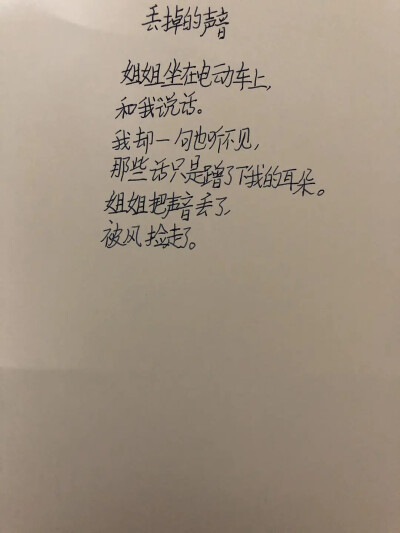 丢掉的声音
姐姐坐在电动车上,
和我说话。
我却一句也听不见,
那些话只是蹭了下我的耳朵。
姐姐把声音丢了,
被风捡走了。